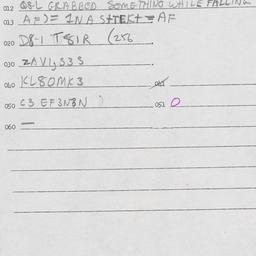 012 Q8-L GRABBED SOMETHING WHILE FALLING
013 AF)= INA STEKT = AF
020 D8-1 T8IR (256
030 ZAVI,S3S
040 KL8OMK3
050 C3 EF3N8N ) 051 O
060 —